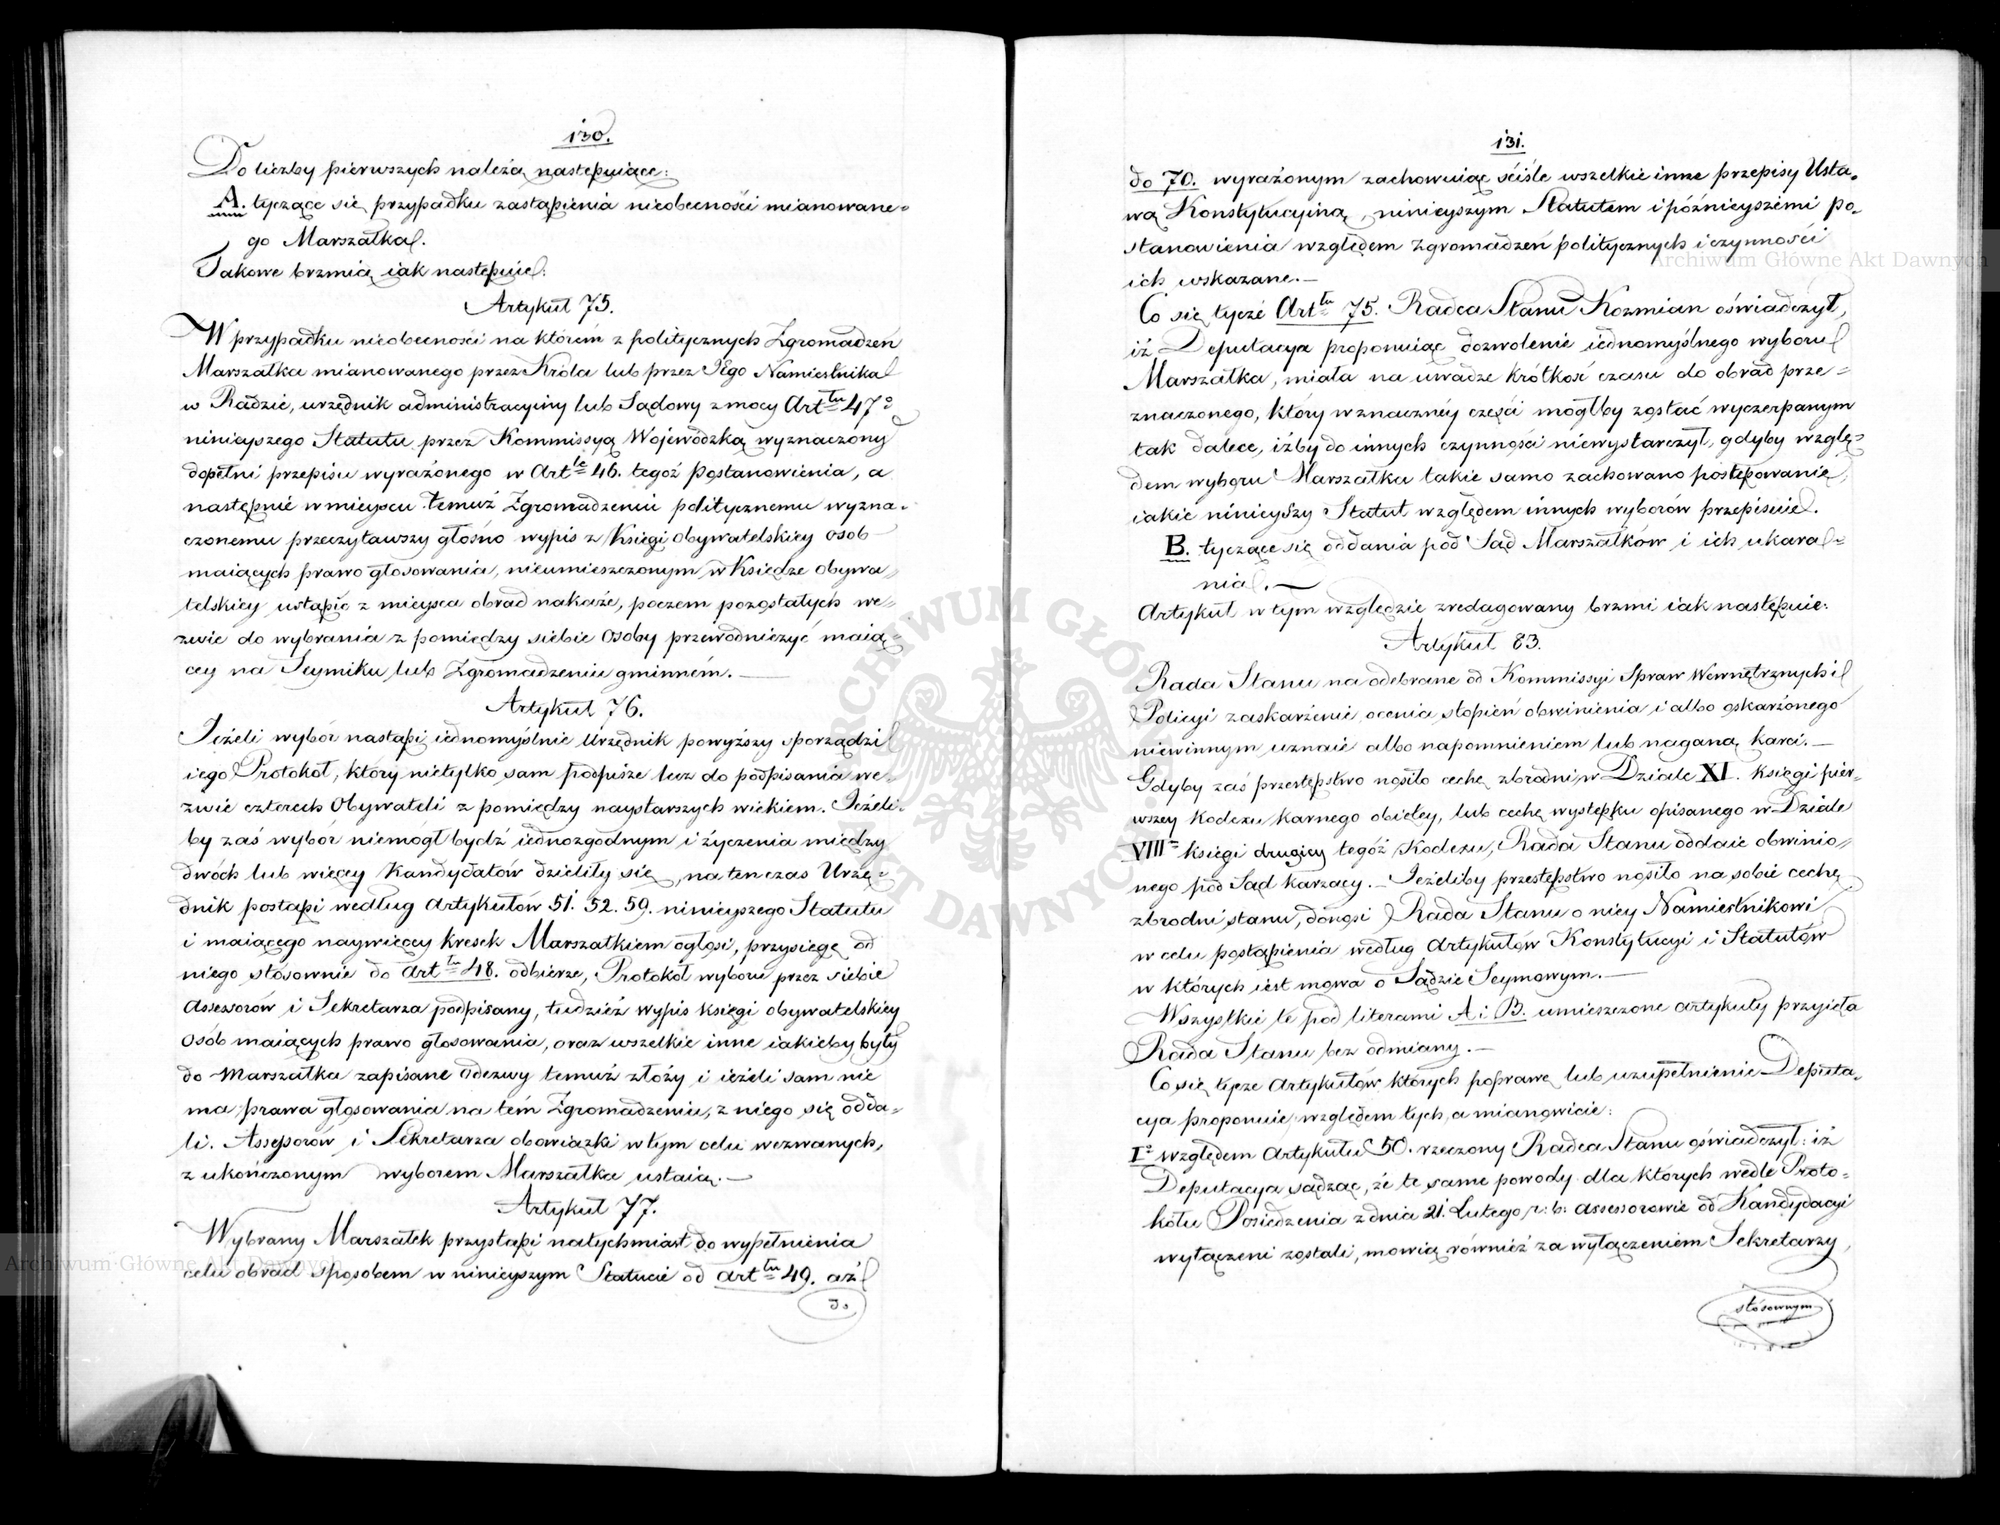 130.
Do liczby pierwszych należą następuiące:
A. tyczące się przypadku zastąpienia nieobecności mianowane=
go Marszałka.
Takowe brzmią iak następuie:
Artykuł 75.
W przypadku nieobecności na którém z politycznych Zgromadzeń
Marszałka mianowanego przez Króla lub przez Jego Namiestnika
w Radzie, urzędnik administracyiny lub Sądowy z mocy Art tu 47o
ninieyszego Statutu przez Kommissyą Woiewódzką wyznaczony
dopełni przepisu wyrażonego w Art le 46. tegoż Postanowienia, a
następnie w mieyscu temuż Zgromadzeniu politycznemu wyzna=
czonemu przeczytawszy głośno wypis z Księgi Obywatelskiey osob
maiących prawo głosowania, nieumieszczonym w Księdze Obywa=
telskiey ustąpić z mieysca obrad nakaże, poczem pozostałych we=
zwie do wybrania z pomiędzy siebie Osoby przewodniczyć maią=
cey na Seymiku lub Zgromadzeniu gminném.
Artykuł 76.
Jeżeli wybór nastąpi iednomyślnie Urzędnik powyższy sporządzi
iego Protokół, który nietylko sam podpisze lecz do podpisania we=
zwie czterech Obywateli z pomiędzy naystarszych wiekiem. Jeżeli=
by zaś wybór niemógł bydź iednozgodnym i życzenia między
dwóch lub więcey Kandydatów dzieliły się, na ten czas Urzę=
dnik postąpi według Artykułów 51. 52. 59. ninieyszego Statutu
i maiącego naywięcey kresek Marszałkiem ogłosi, przysięgę od
niego stósownie do Art tu 48. odbierze, Protokół wyboru przez siebie
Assessorów i Sekretarza podpisany, tudzież wypis księgi obywatelskiey
Osób maiących prawo głosowania, oraz wszelkie inne iakieby były
do Marszałka zapisane Odezwy temuż złoży i ieżeli sam nie
ma prawa głosowania na tém Zgromadzeniu, z niego się odda=
li. Assessorów i Sekretarza obowiązki w tym celu wezwanych,
z ukończonym wyborem Marszałka ustaią.
Artykuł 77.
Wybrany Marszałek przystąpi natychmiast do wypełnienia
celu obrad sposobem w ninieyszym Statucie od Art tu 49. aż
do
131.
do 70. wyrażonym zachowuiąc ściśle wszelkie inne przepisy Usta=
wą Konstytucyiną, ninieyszym Statutem i późnieyszémi po=
stanowienia względem zgromadzeń politycznych i czynności
ich wskazane.
Co się tycze Art tu 75. Radca Stanu Kozmian oświadczył,
iż Deputacya proponuiąc dozwolenie iednomyślnego wyboru
Marszałka, miała na uwadze krótkość czasu do obrad prze=
znaczonego, który w znaczney części mógłby zostać wyczerpanym
tak dalece, iżby do innych czynności niewystarczył, gdyby wzglę=
dem wyboru Marszałka takie samo zachowano postępowanie,
iakie ninieyszy Statut względem innych wyborów przepisuie.
B. tyczące się oddania pod Sąd Marszałków i ich ukara=
nia.
Artykuł w tym względzie zredagowany brzmi iak następuie:
Artykuł 83.
Rada Stanu na odebrane od Kommissyi Spraw Wewnętrznych i
Policyi zaskarżenie, ocenia stopień obwinienia i albo oskarżonego
niewinnym uznaie albo napomnieniem lub naganą karci.
Gdyby zaś przestępstwo nosiło cechę zbrodni w Dziale XI. księgi pier=
wszey Kodexu karnego obiętey, lub cechę występku opisanego w Dziale
VIII księgi drugiey tegóż Kodexu, Rada Stanu oddaie obwinio=
nego pod Sąd karzący. Jeżeliby przestępstwo nosiło na sobie cechę
zbrodni stanu, donosi Rada Stanu o niey Namiestnikowi
w celu postąpienia według Artykułów Konstytucyi i Statutów
w których iest mowa o Sądzie Seymowym.
Wszystkie te pod literami A i B. umieszczone artykuły przyięła
Rada Stanu bez odmiany.
Co się tycze Artykułów których poprawę lub uzupełnienie Deputa=
cya proponuie względem tych, a mianowicie:
I° względem Artykułu 50. rzeczony Radca Stanu oświadczył: iż
Deputacya sądząc, że te same powody dla których wedle Proto=
kółu Posiedzenia z dnia 21. Lutego r: b: Assessorowie od Kandydacyi
wyłączeni zostali, mówią również za wyłączeniem Sekretarzy,
stósownym
Archiwum Główne Akt Dawnych
Archiwum Główne Akt Dawnych
ARCHIWUM GŁÓWNE AKT DAWNYCH